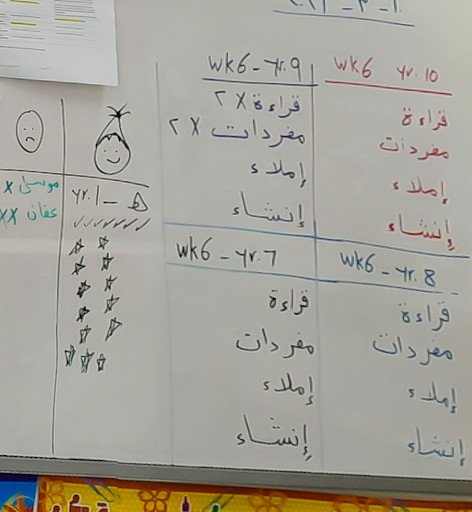 wk6 yr.10
قراءة
مفردات
إملاء
إنشاء
wk6 - yr.9
قراءة X ٢
مفردات X ٢
إملاء
إنشاء
wk6 - yr.8
قراءة
مفردات
إملاء
إنشاء
wk6 - yr.7
قراءة
مفردات
إملاء
إنشاء
yr.1 - ه
موسى X
عفان XX